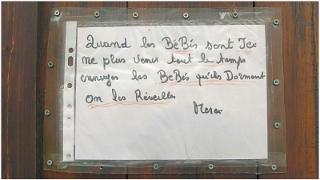 Quand les BéBés sont Ici
ne plus venir tout le temps
ennuyer les BeBés qu'ils Dorment
on les Réveiller
Merci